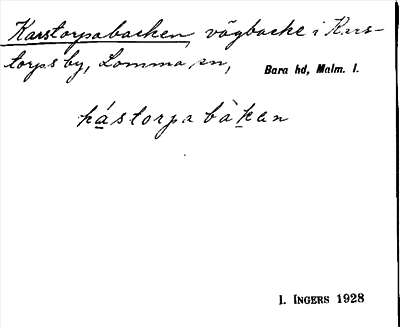 Karstorpabacken, vägbacke i Kars-
torps by, Lomma sn, Bara hd, Malm. l.
kástorpa bàkan
I. INGERS 1928